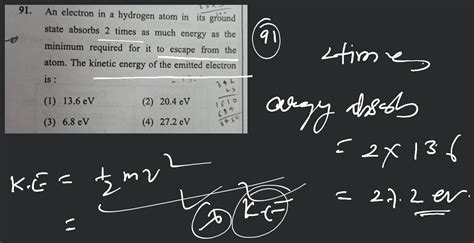 91. An electron in a hydrogen atom in its ground
state absorbs 2 times as much energy as the
minimum required for it to escape from the
atom. The kinetic energy of the emitted electron
is :
(1) 13.6 eV (2) 20.4 eV
(3) 6.8 eV (4) 27.2 eV
91
2 time
energy absorb
= 2 × 13.6
= 27.2 ev
K.E = 1/2 mv²
=
K.E